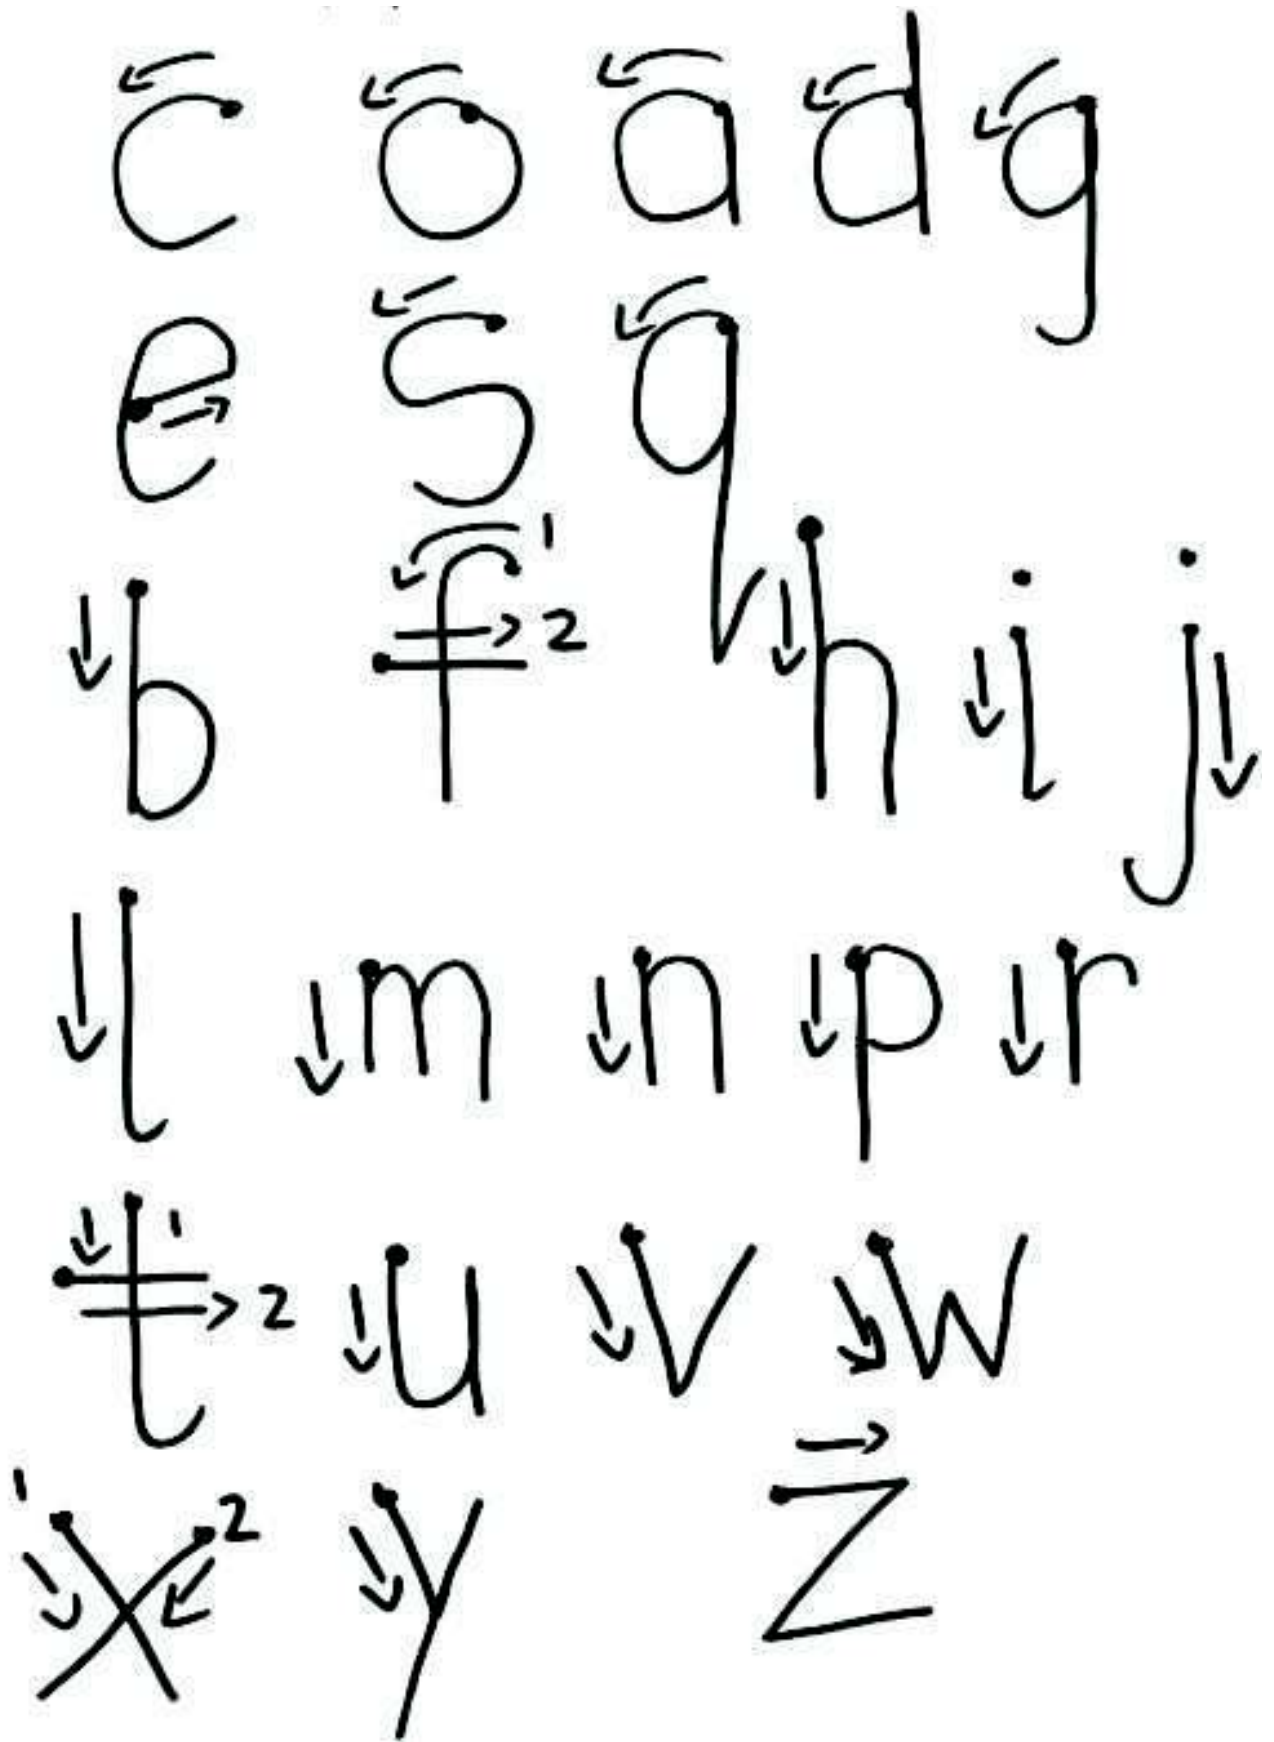 c o a d g
e s q
b f 1 2 h i j
l m n p r
t 1 2 u v w
1 x 2 y z